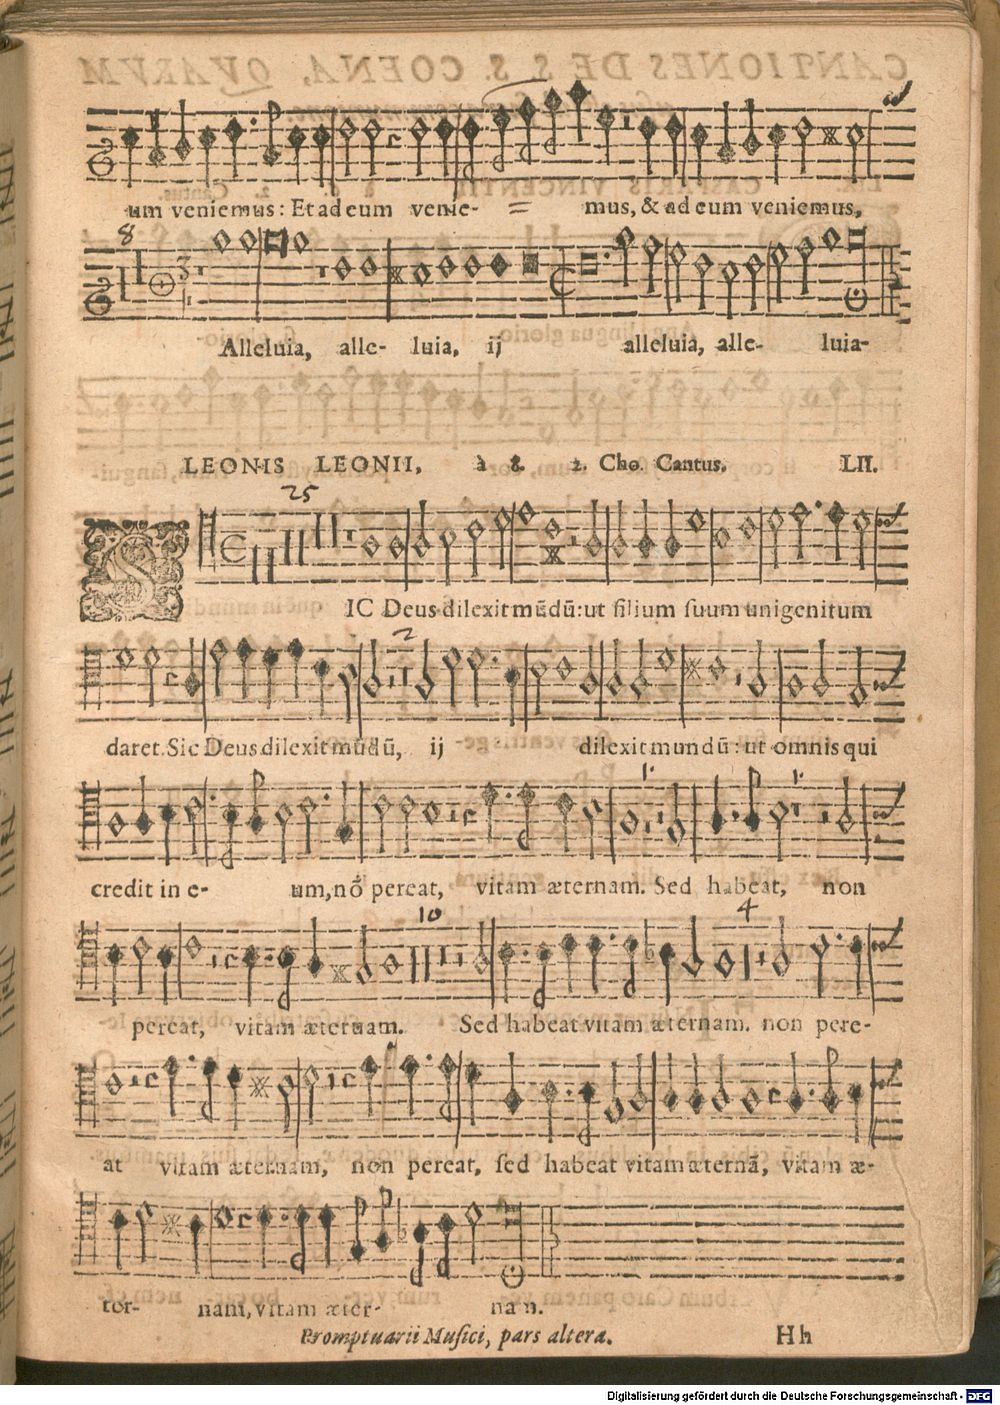 um veniemus: Et ad eum venie- = mus, & ad eum veniemus,
8
3
Alleluia, alle- luia, ij alleluia, alle- luia-
LEONIS LEONII, à 8. 2. Cho. Cantus. LII.
25
SIC Deus dilexit mũdũ: ut filium suum unigenitum
2
daret. Sic Deus dilexit mũdũ, ij dilexit mundũ: ut omnis qui
1. 1.
credit in e- um, nõ pereat, vitam æternam. Sed habeat, non
10 4
pereat, vitam æternam. Sed habeat vitam æternam. non pere-
at vitam æternam, non pereat, sed habeat vitam æternã, vitam æ-
ter- nam, vitam æter- nam.
Promptuarii Musici, pars altera. Hh
Digitalisierung gefördert durch die Deutsche Forschungsgemeinschaft - DFG